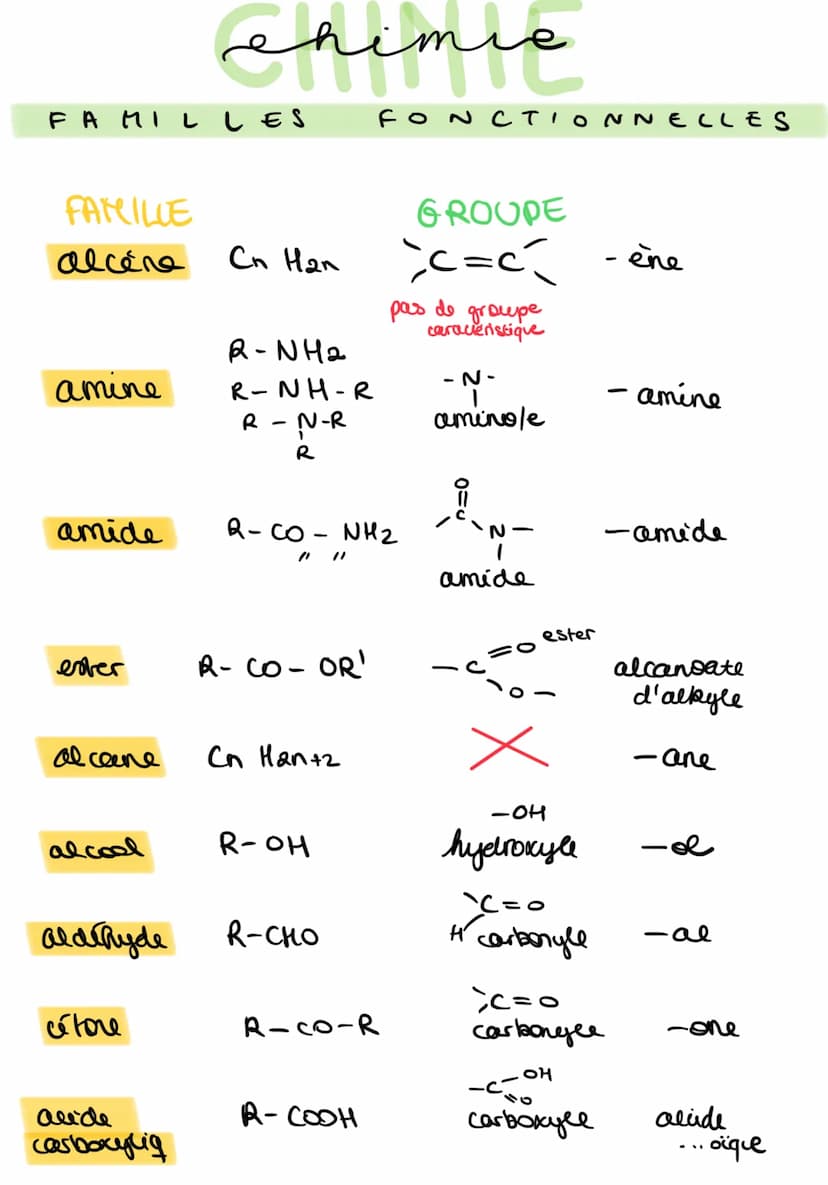 CHIMIE
chimie
FAMILLES FONCTIONNELLES
FAMILLE GROUPE
alcène Cn H2n C=C - ène
pas de groupe
caractéristique
R-NH2
amine R-NH-R -N- - amine
R - N-R amino/e
R
O
C
amide R-CO-NH2 N- -amide
" "
amide
=O ester
ester R- CO- OR' -C alcanoate
O- d'alkyle
alcane Cn H2n+2 -ane
-OH
alcool R-OH hydroxyle -ol
C=O
aldéhyde R-CHO H carbonyle -al
C=O
cétone R-CO-R carbonyle -one
-C-OH
=O
acide R-COOH carboxyle acide
carboxyliq ...oïque